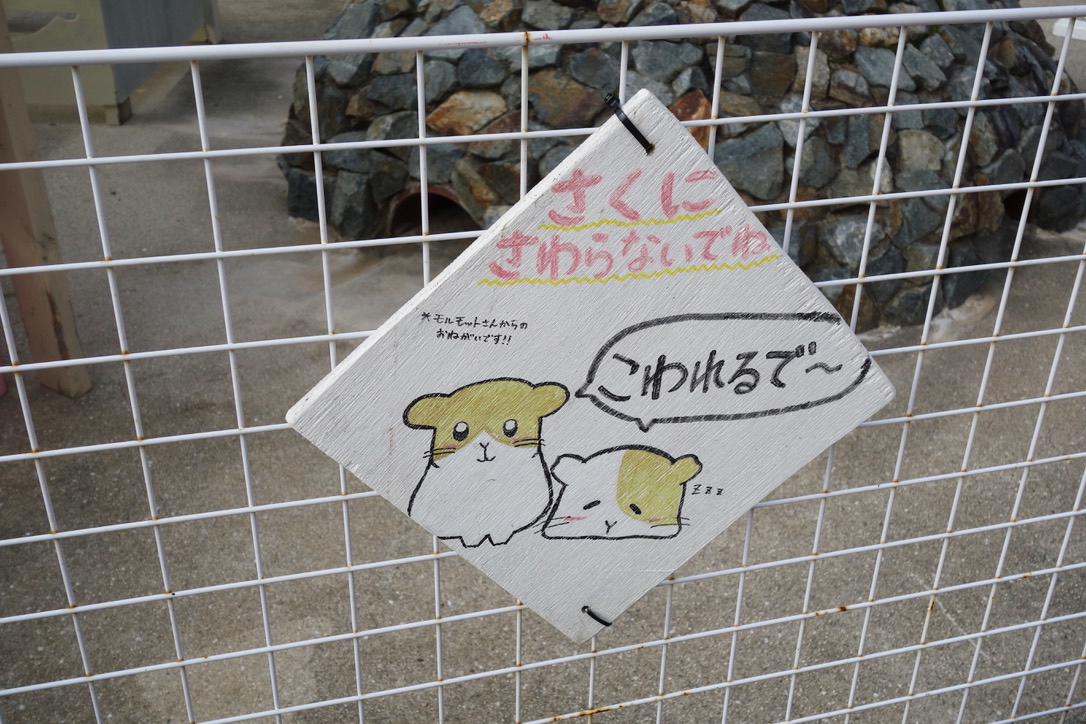 さくに
さわらないでね
※モルモットさんからの
おねがいです!!
こわれるで〜
zzz